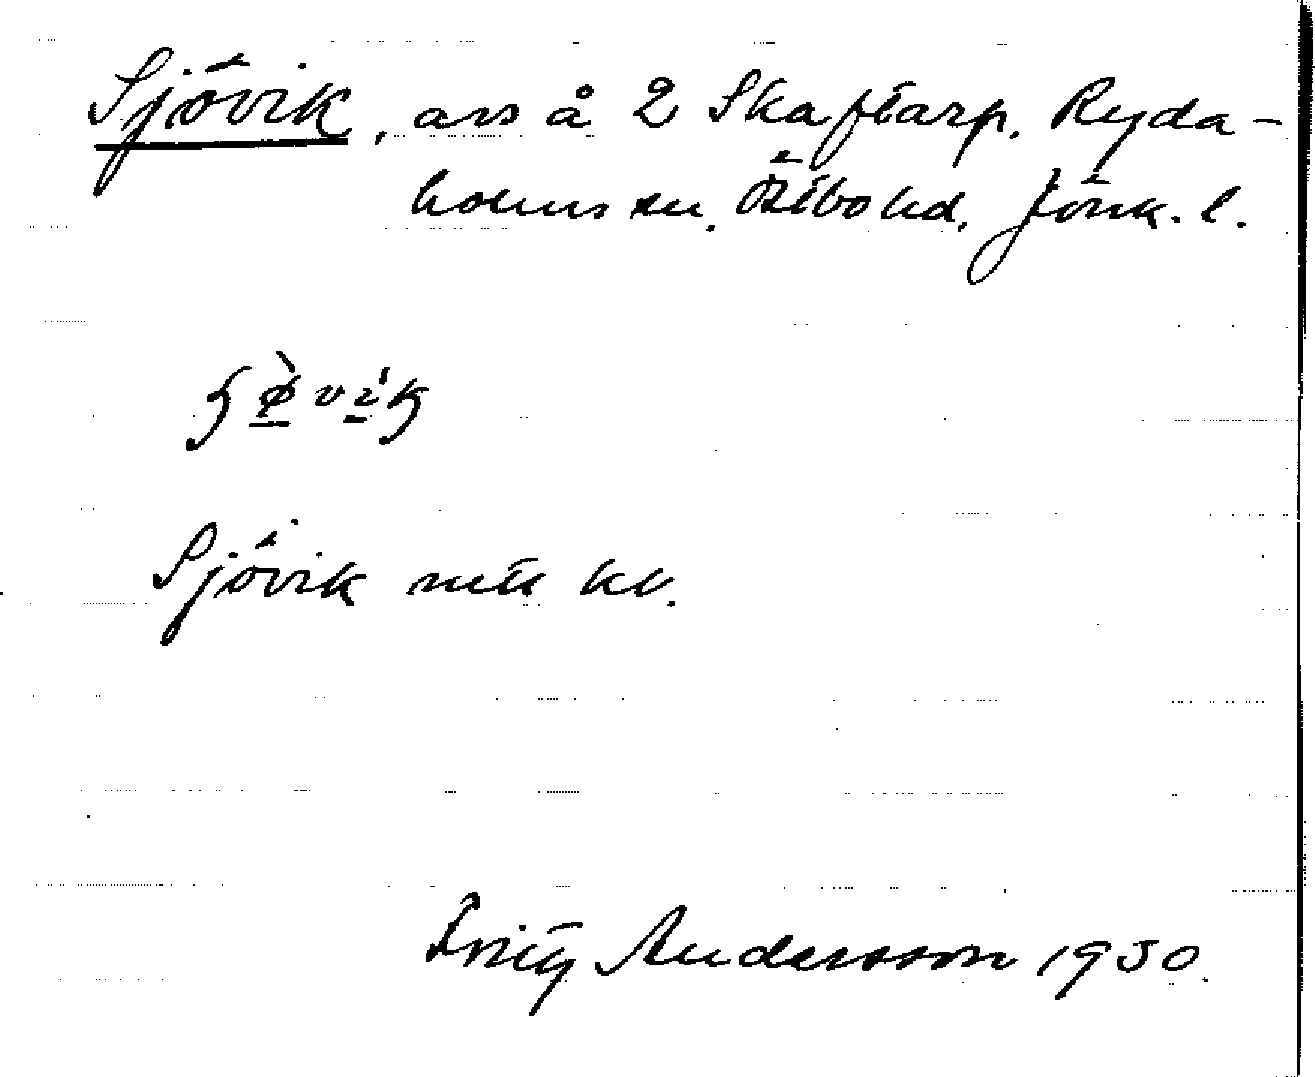 Sjövik, avs å 2 Skaftarp. Ryda-
holms sn. Östbo hd, Jönk. l.
Sjövik mtk bl.
Fritz Andersson 1930.